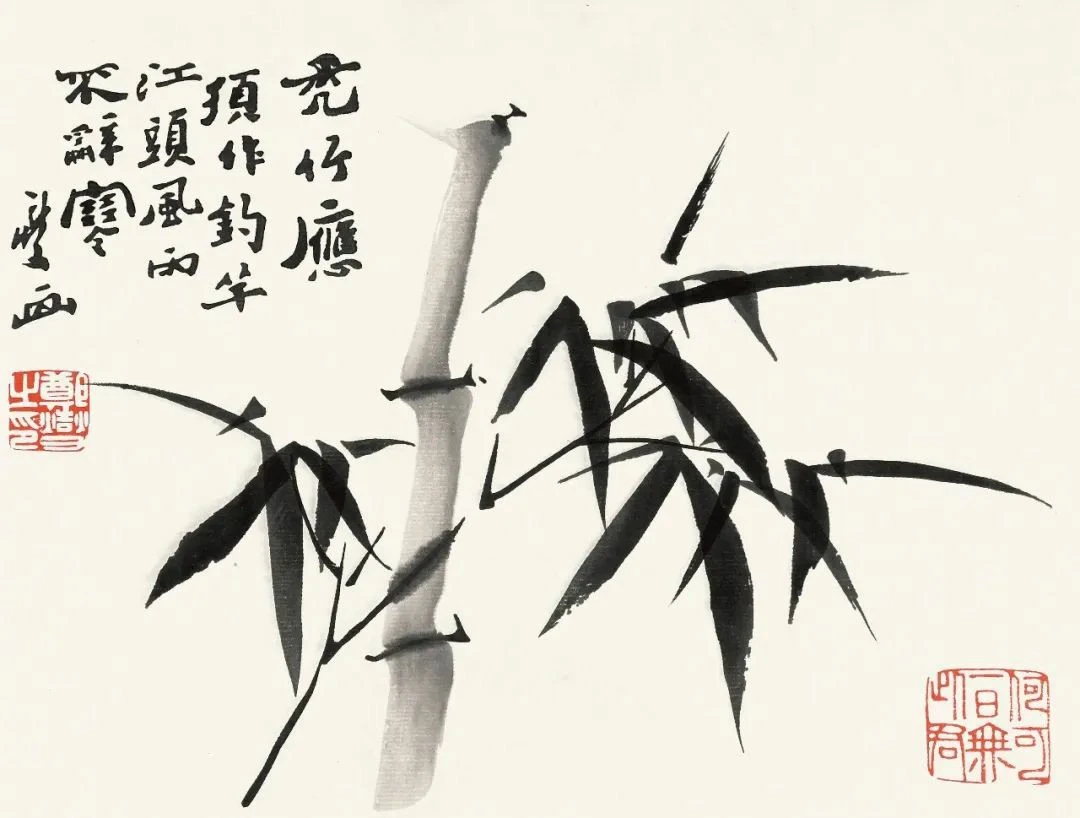 禿竹應
須作釣竿
江頭風雨
不辭寒
燮画
鄭燮
之印
何可
一日無
此君